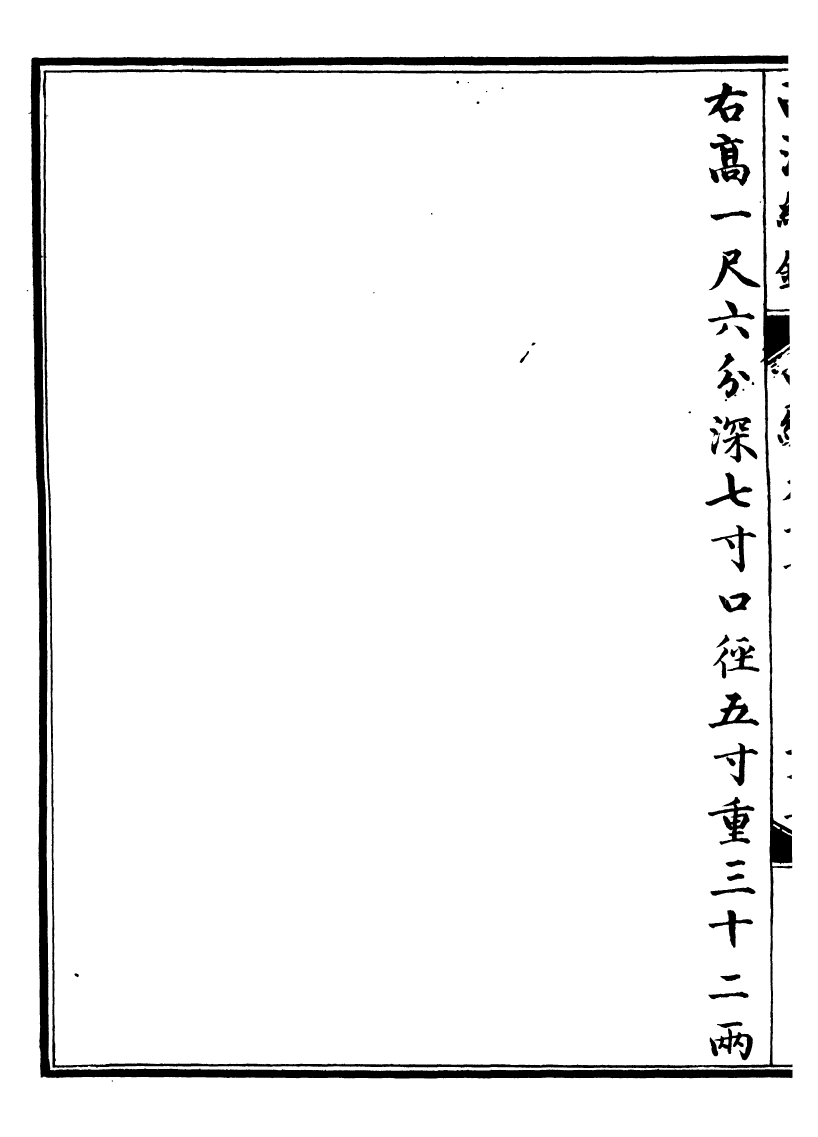 右髙一尺六分深七寸口徑五寸重三十二兩